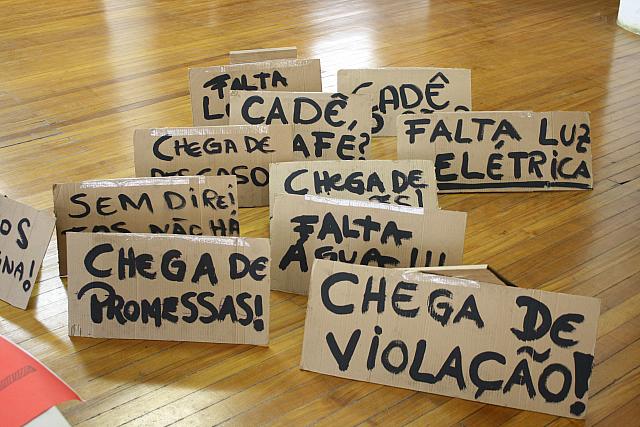 FALTA
CADÊ
CADÊ,
AFÉ?
FALTA LUZ
ELÉTRICA
CHEGA DE
DESCASO
CHEGA DE
SEM DIREI
TOS NÃO HÁ
FALTA
ÁGUA!!!
CHEGA DE
PROMESSAS!
CHEGA DE
VIOLAÇÃO!